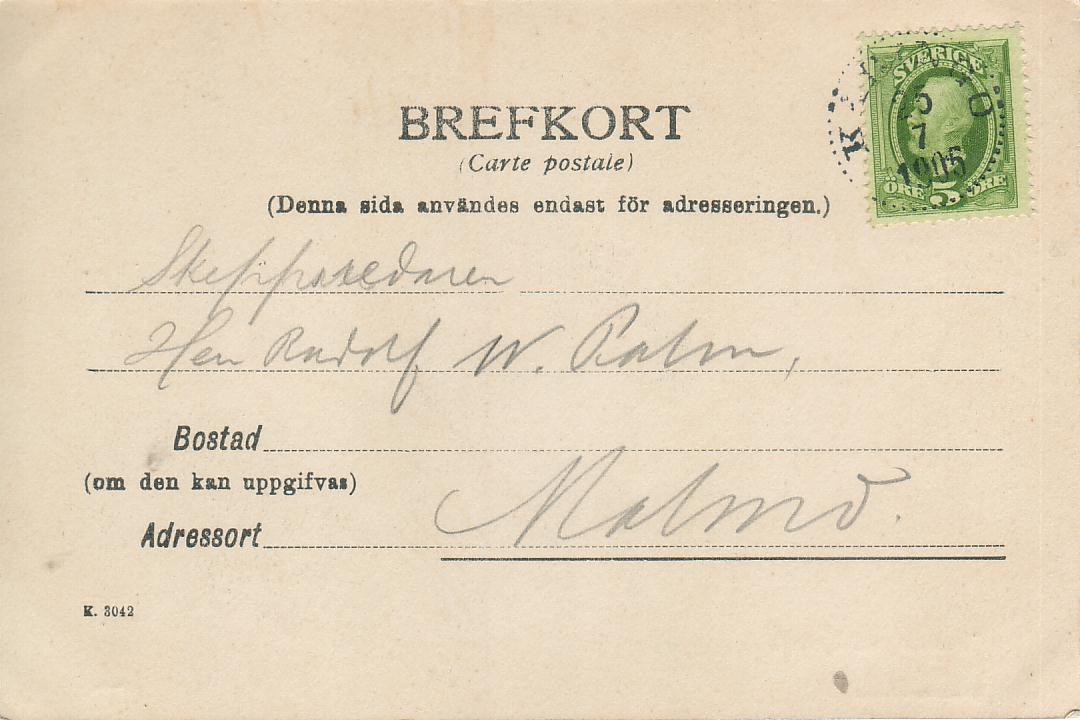 BREFKORT
(Carte postale)
(Denna sida användes endast för adresseringen.)
SVERIGE
5
7
1905
ÖRE 5 ÖRE
Skeppsredaren
Herr Rudolf W. Palm,
Bostad
(om den kan uppgifvas)
Malmö.
Adressort
K. 3042